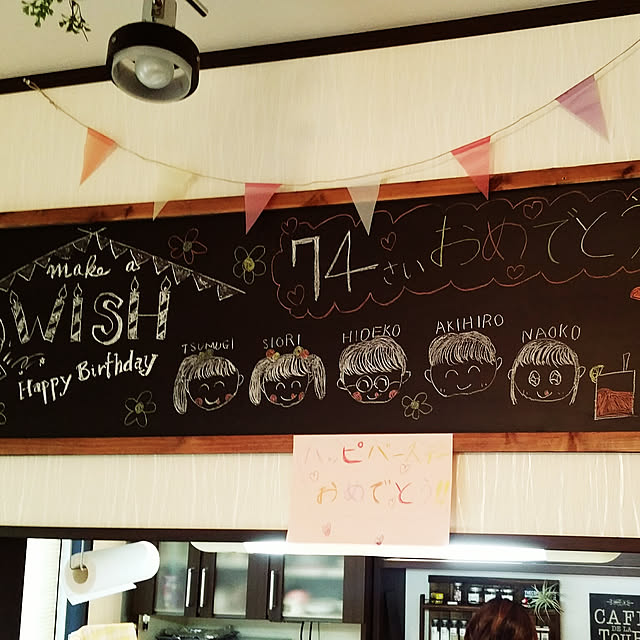 make a
WISH
Happy Birthday
74さいおめでとう
TSUMUGI
SIORI
HIDEKO
AKIHIRO
NAOKO
ハッピバースデー
おめでとう!!
CAFÉ
DE LA